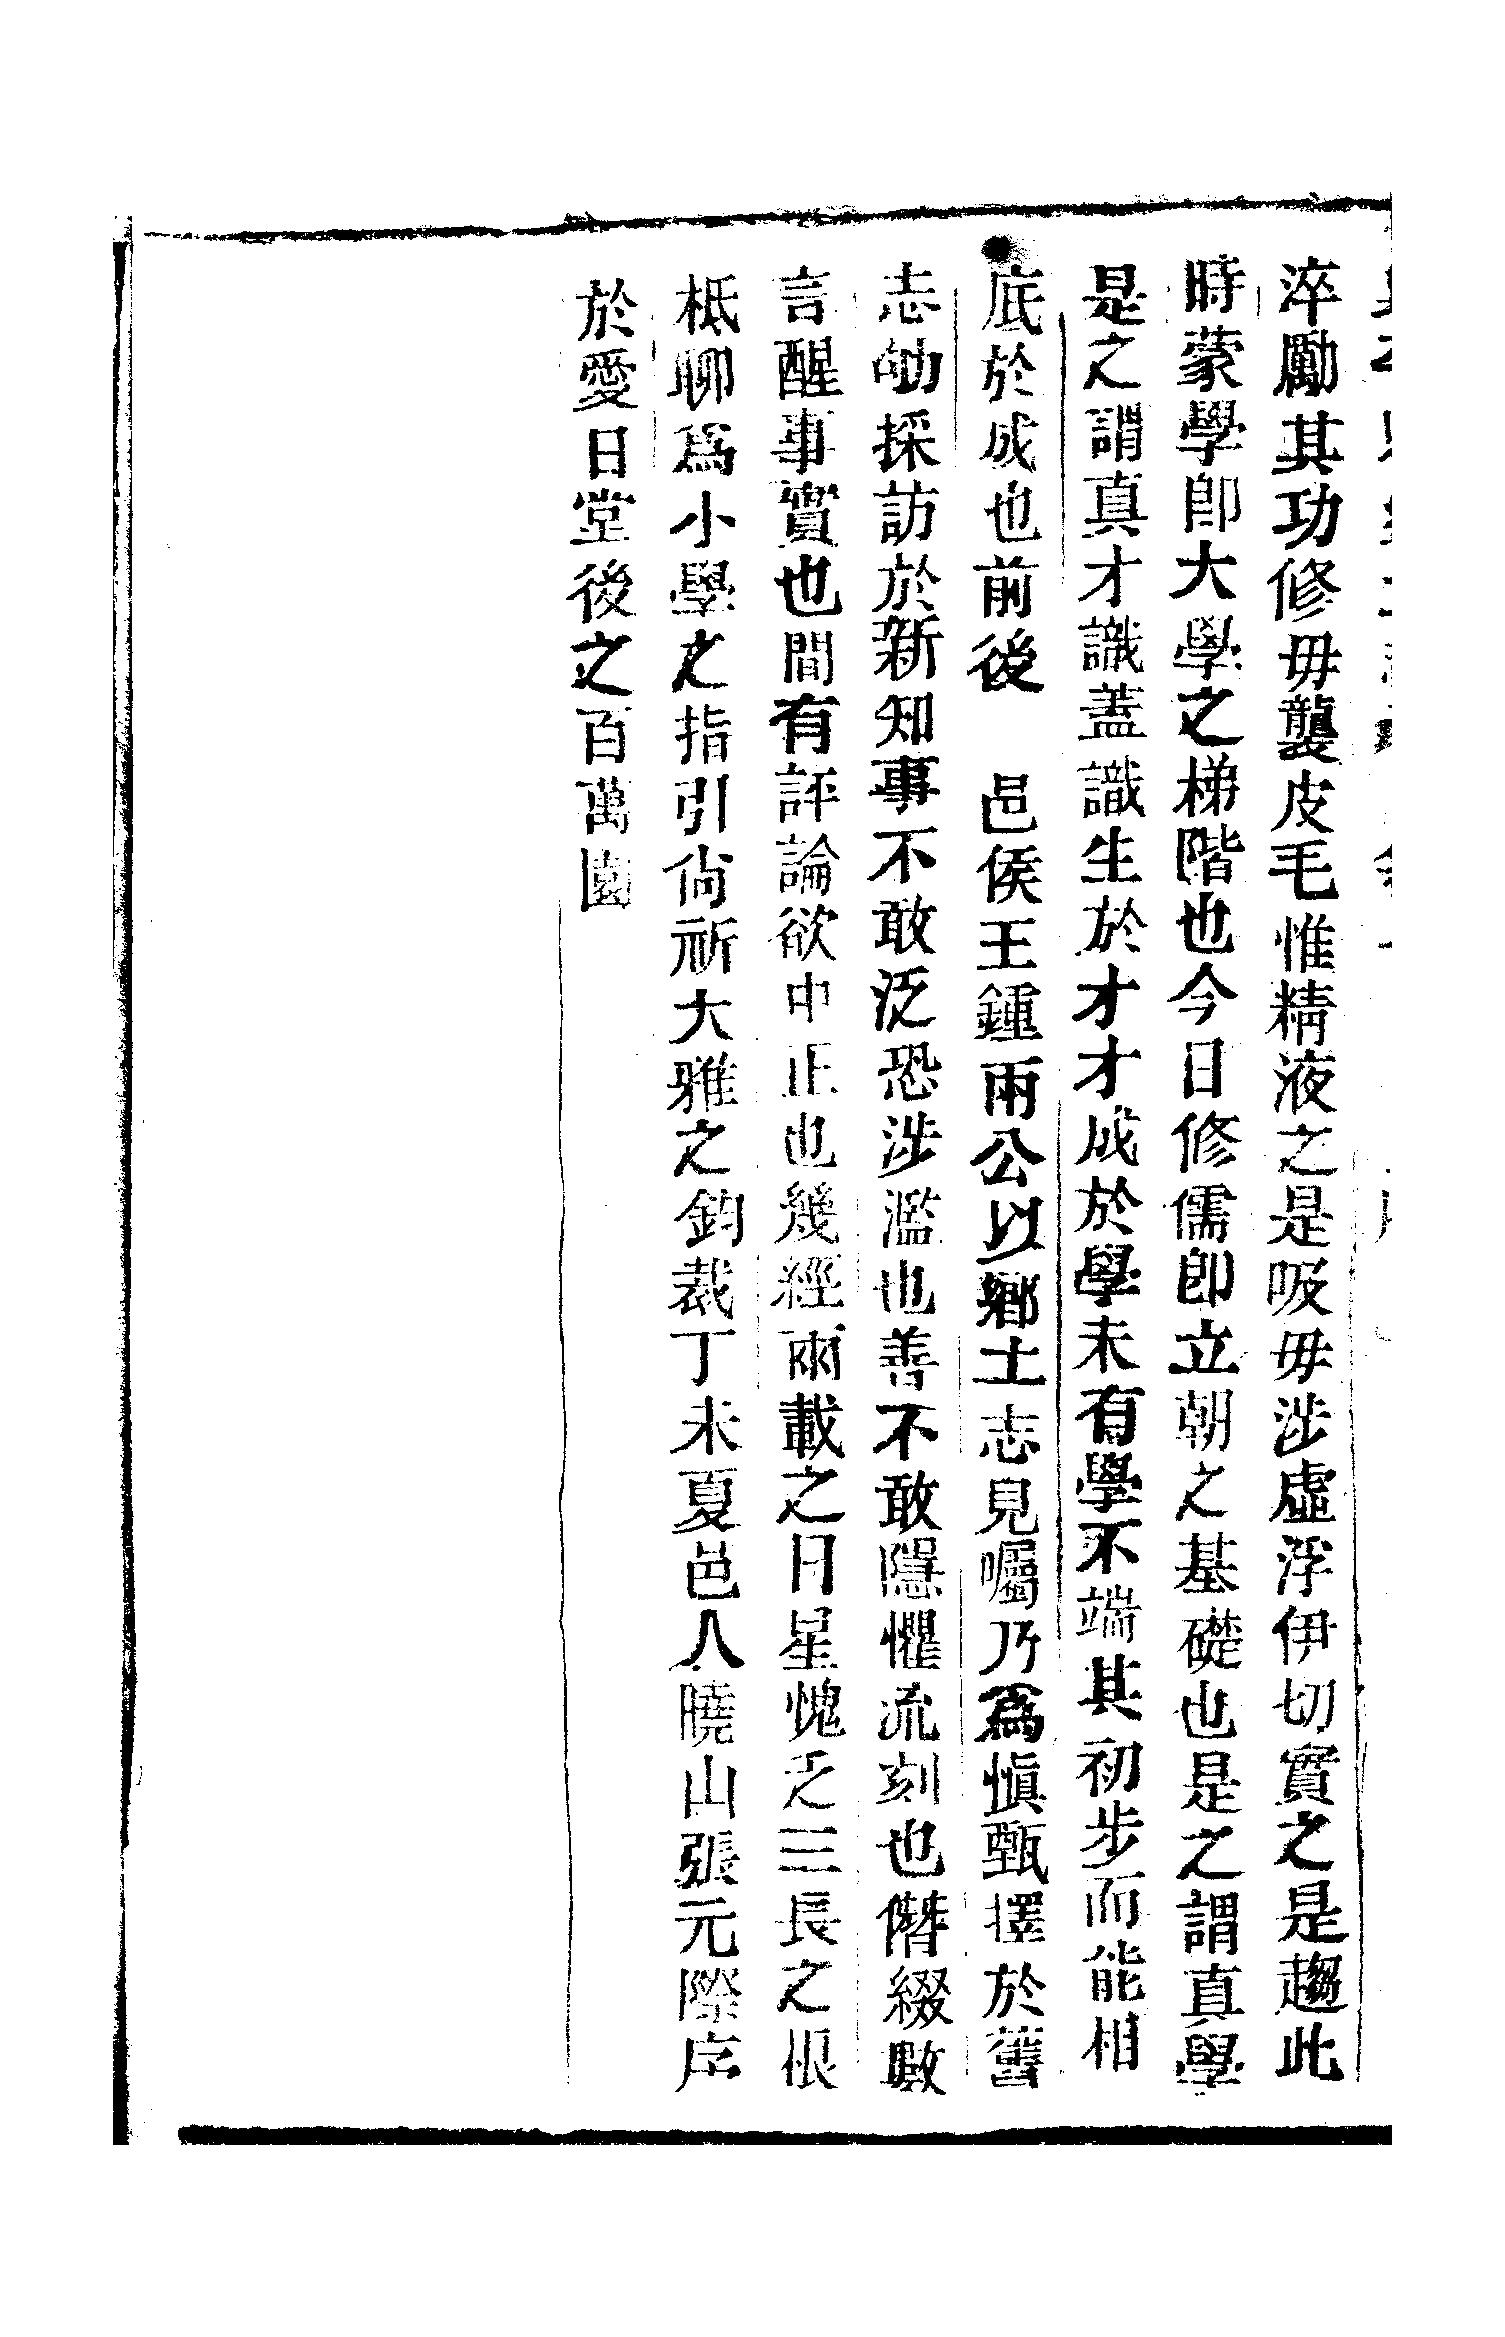 淬勵其功修毋襲皮毛惟精液之是吸毋涉虛浮伊切實之是趨此
時蒙學卽大學之梯階也今日修儒卽立朝之基礎也是之謂真學
是之謂真才識蓋識生於才才成於學未有學不端其初步而能相
底於成也前後　邑侯王鍾兩公以鄉土志見囑乃爲愼甄擇於舊
志劬採訪於新知事不敢泛恐涉濫也善不敢隱懼流刻也僭綴數
言醒事實也間有評論欲中正也幾經兩載之日星愧乏三長之根
柢聊爲小學之指引尙祈大雅之鈞裁丁未夏邑人曉山張元際序
於愛日堂後之百萬園